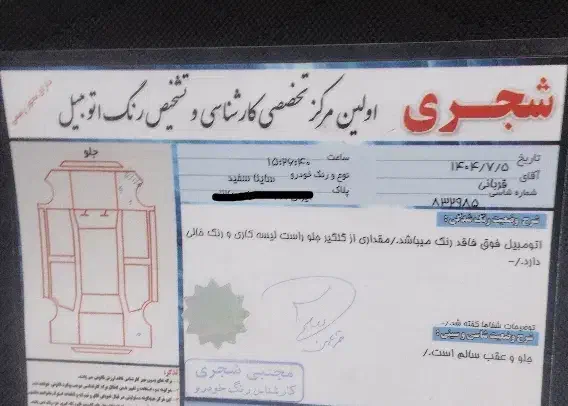 شجری
اولین مرکز تخصصی کارشناسی و تشخیص رنگ اتومبیل
جلو
تاریخ ۱۴۰۴/۷/۵
ساعت ۱۵:۲۶:۴۰
آقای قربانی
نوع و رنگ خودرو ساینا سفید
شماره شاسی ۸۳۲۹۸۵
پلاک
شرح وضعیت رنگ شدگی :
اتومبیل فوق فاقد رنگ میباشد./مقداری از گلگیر جلو راست لیسه کاری و رنگ خالی
دارد./-
توضیحات شفاها گفته شد./-
شرح وضعیت شاسی و سینی :
جلو و عقب سالم است./
مجتبی شجری
کارشناس رنگ خودرو
تذکر: